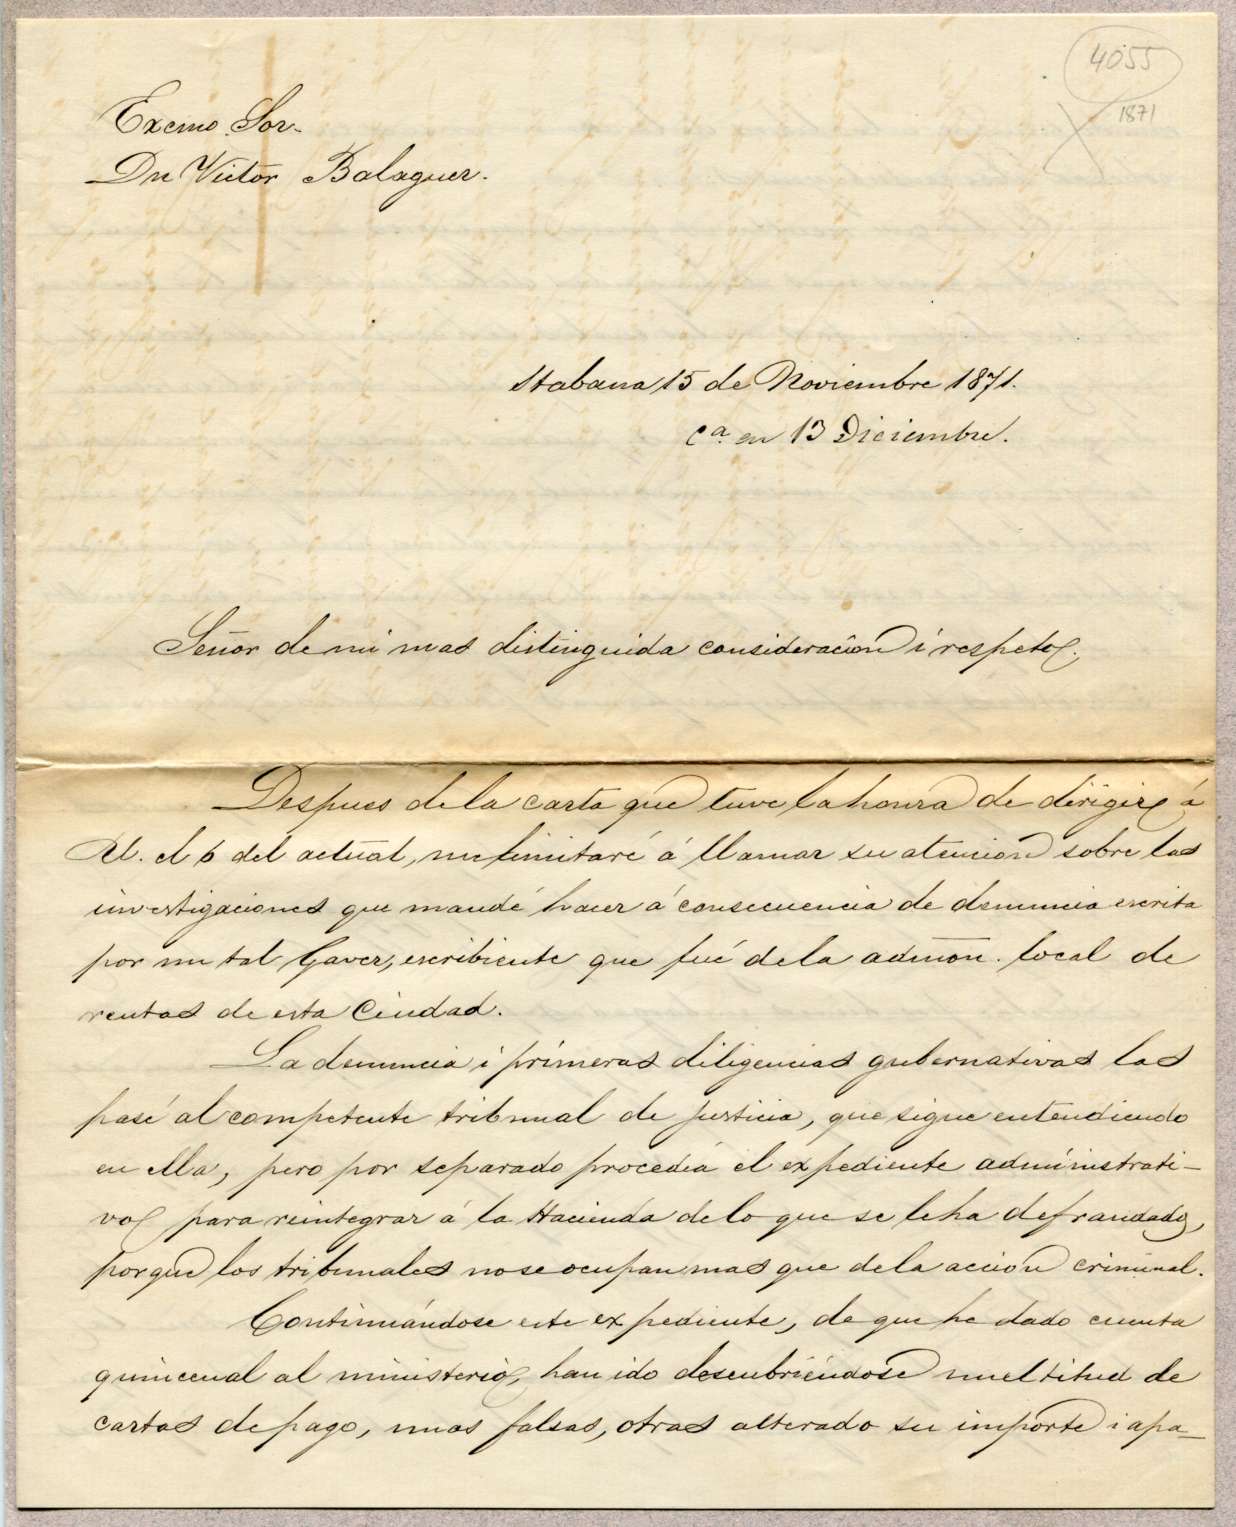 4055
1871
Excmo. Sor.
Dn Victor Balaguer.
Habana 15 de Noviembre 1871.
Cª. en 13 Diciembre.
Señor de mi mas distinguida consideracion i respeto;
Despues de la carta que tuve la honra de dirigir á
el 6 del actual, me limitaré á llamar su atencion sobre las
investigaciones que mandé hacer á consecuencia de denuncia escrita
por un tal Gaver, escribiente que fué de la admon. local de
rentas de esta Ciudad.
La denuncia i primeras diligencias gubernativas las
pasé al competente tribunal de justicia, que sigue entendiendo
en ella, pero por separado procedia el expediente administrati-
vo para reintegrar á la Hacienda de lo que se le ha defraudado,
porque los tribunales no se ocupan mas que de la accion criminal.
Continuándose este expediente, de que he dado cuenta
quincenal al ministerio, han ido descubriéndose multitud de
cartas de pago, unas falsas, otras alterado su importe i apa-